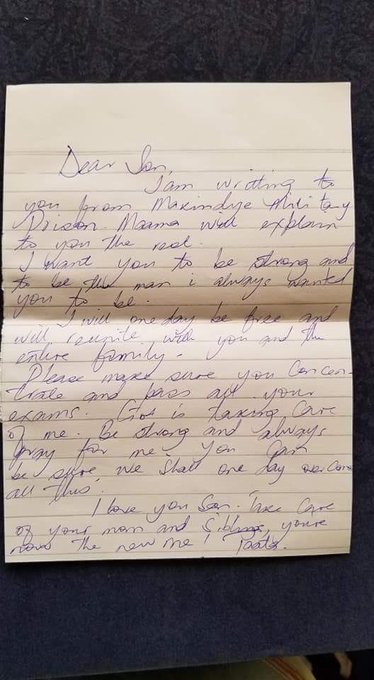 Dear Son,
I am writing to
you from Makindye Military
Prison. Maama will explain
to you the rest.
I want you to be strong and
to be the man i always wanted
you to be.
I will one day be free and
will reunite with you and the
entire family.
Please make sure you concen-
trate and pass all your
exams. God is taking care
of me. Be strong and always
pray for me. You can
be sure, we shall one day over come
all this.
I love you Son. Take care
of your mom and siblings, you're
now the new me! Taata.